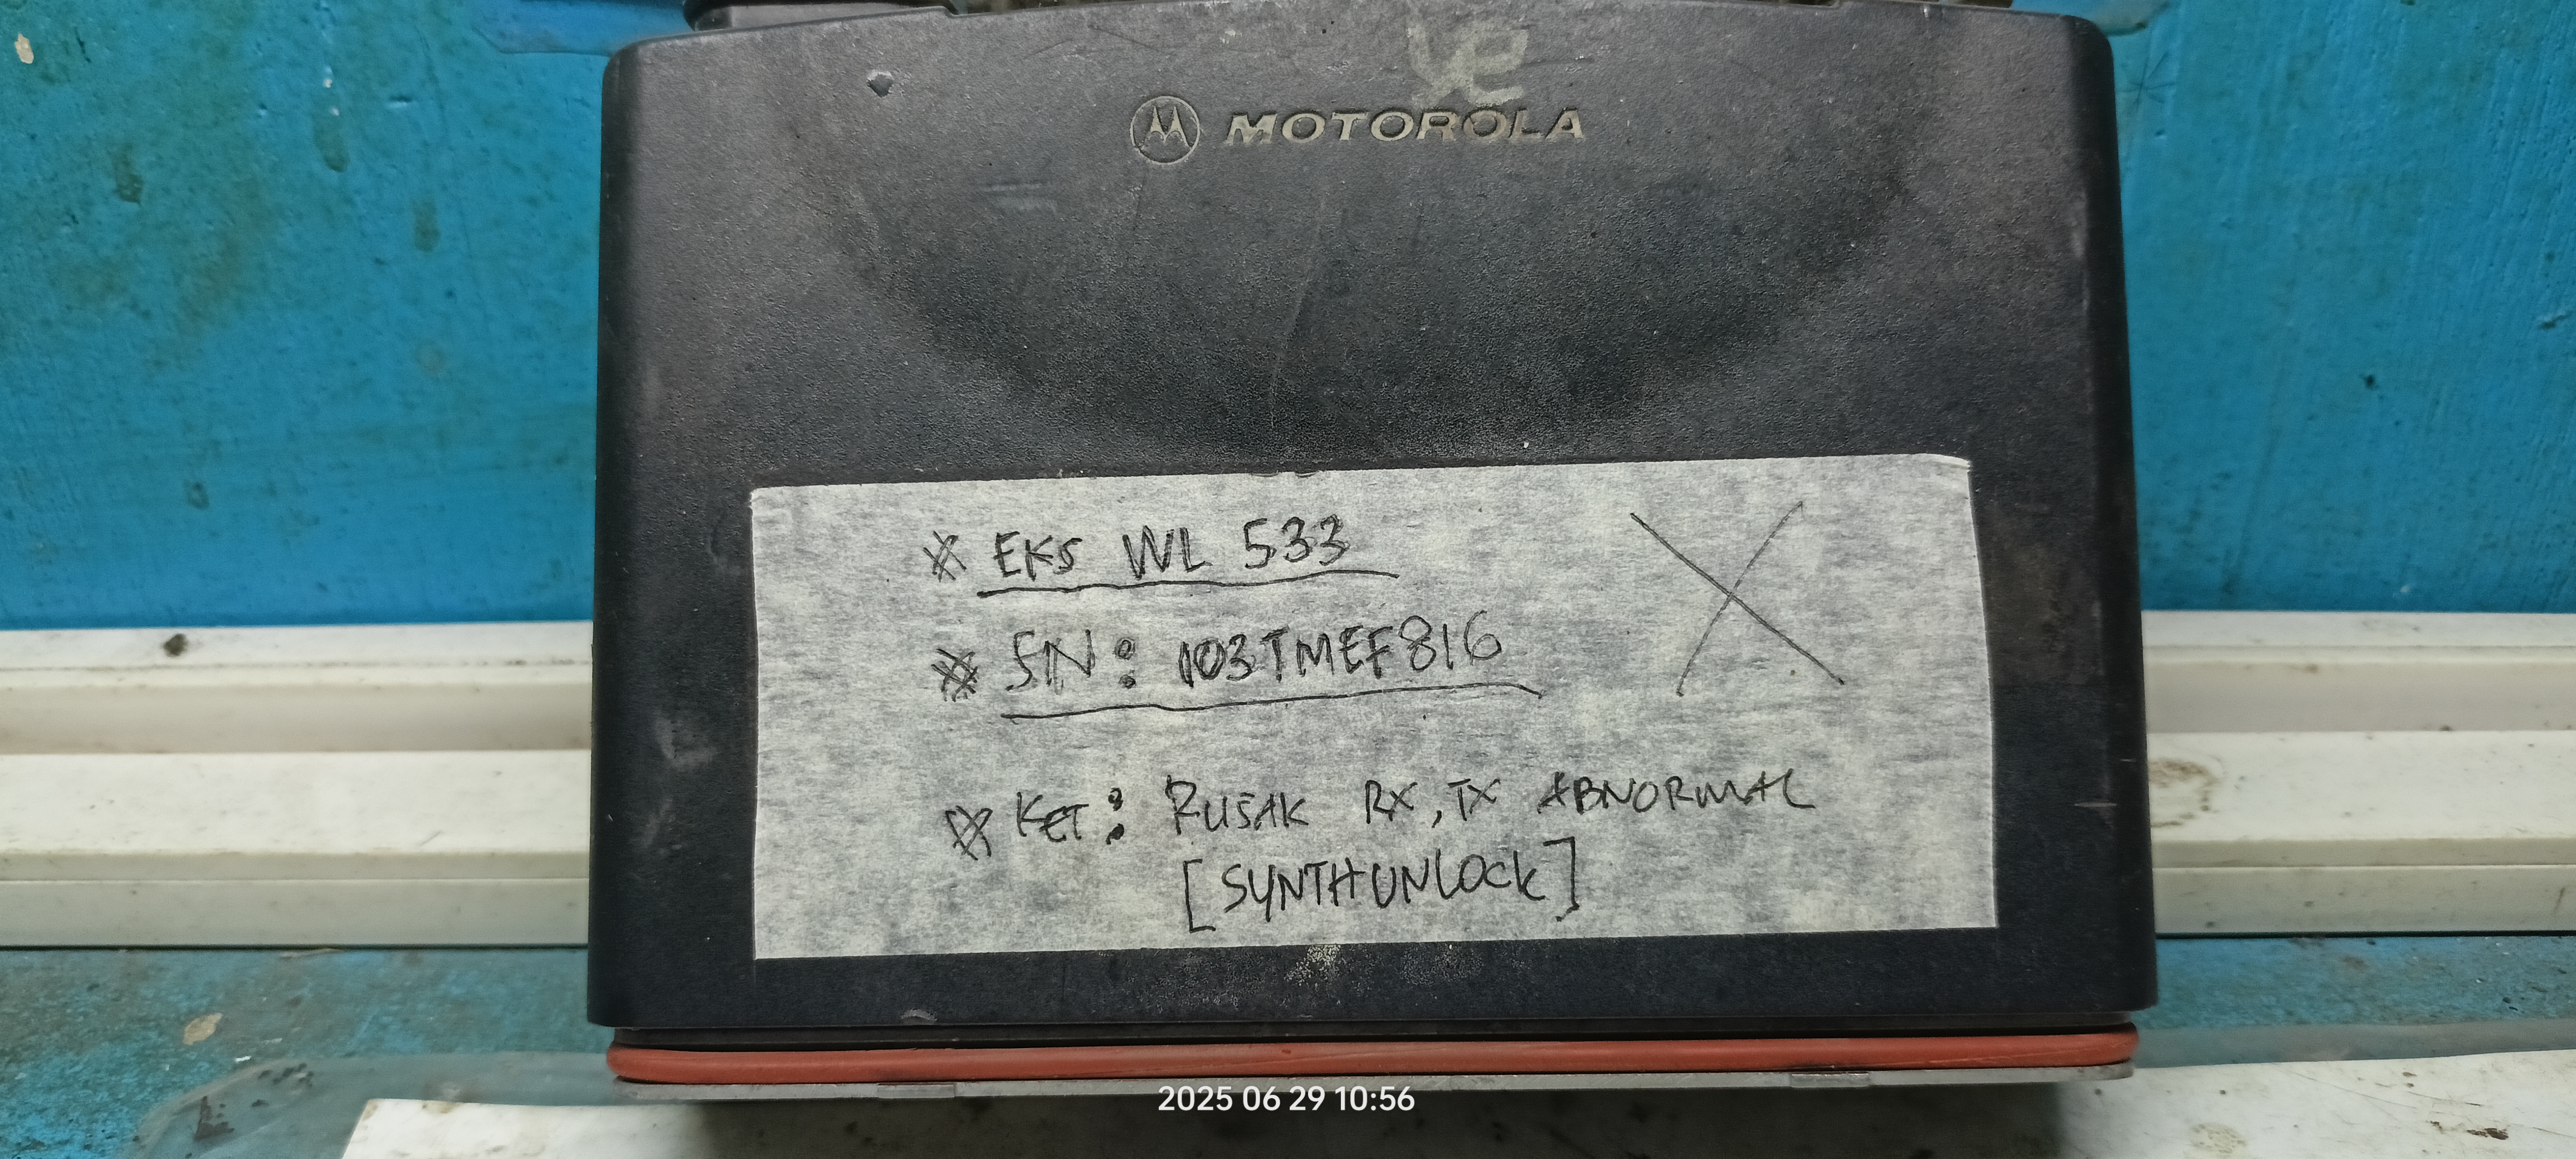 MOTOROLA
* EKS WL 533
* SN: 103TMEF816
* KET: RUSAK RX, TX ABNORMAL
[SYNTH UNLOCK]
2025 06 29 10:56